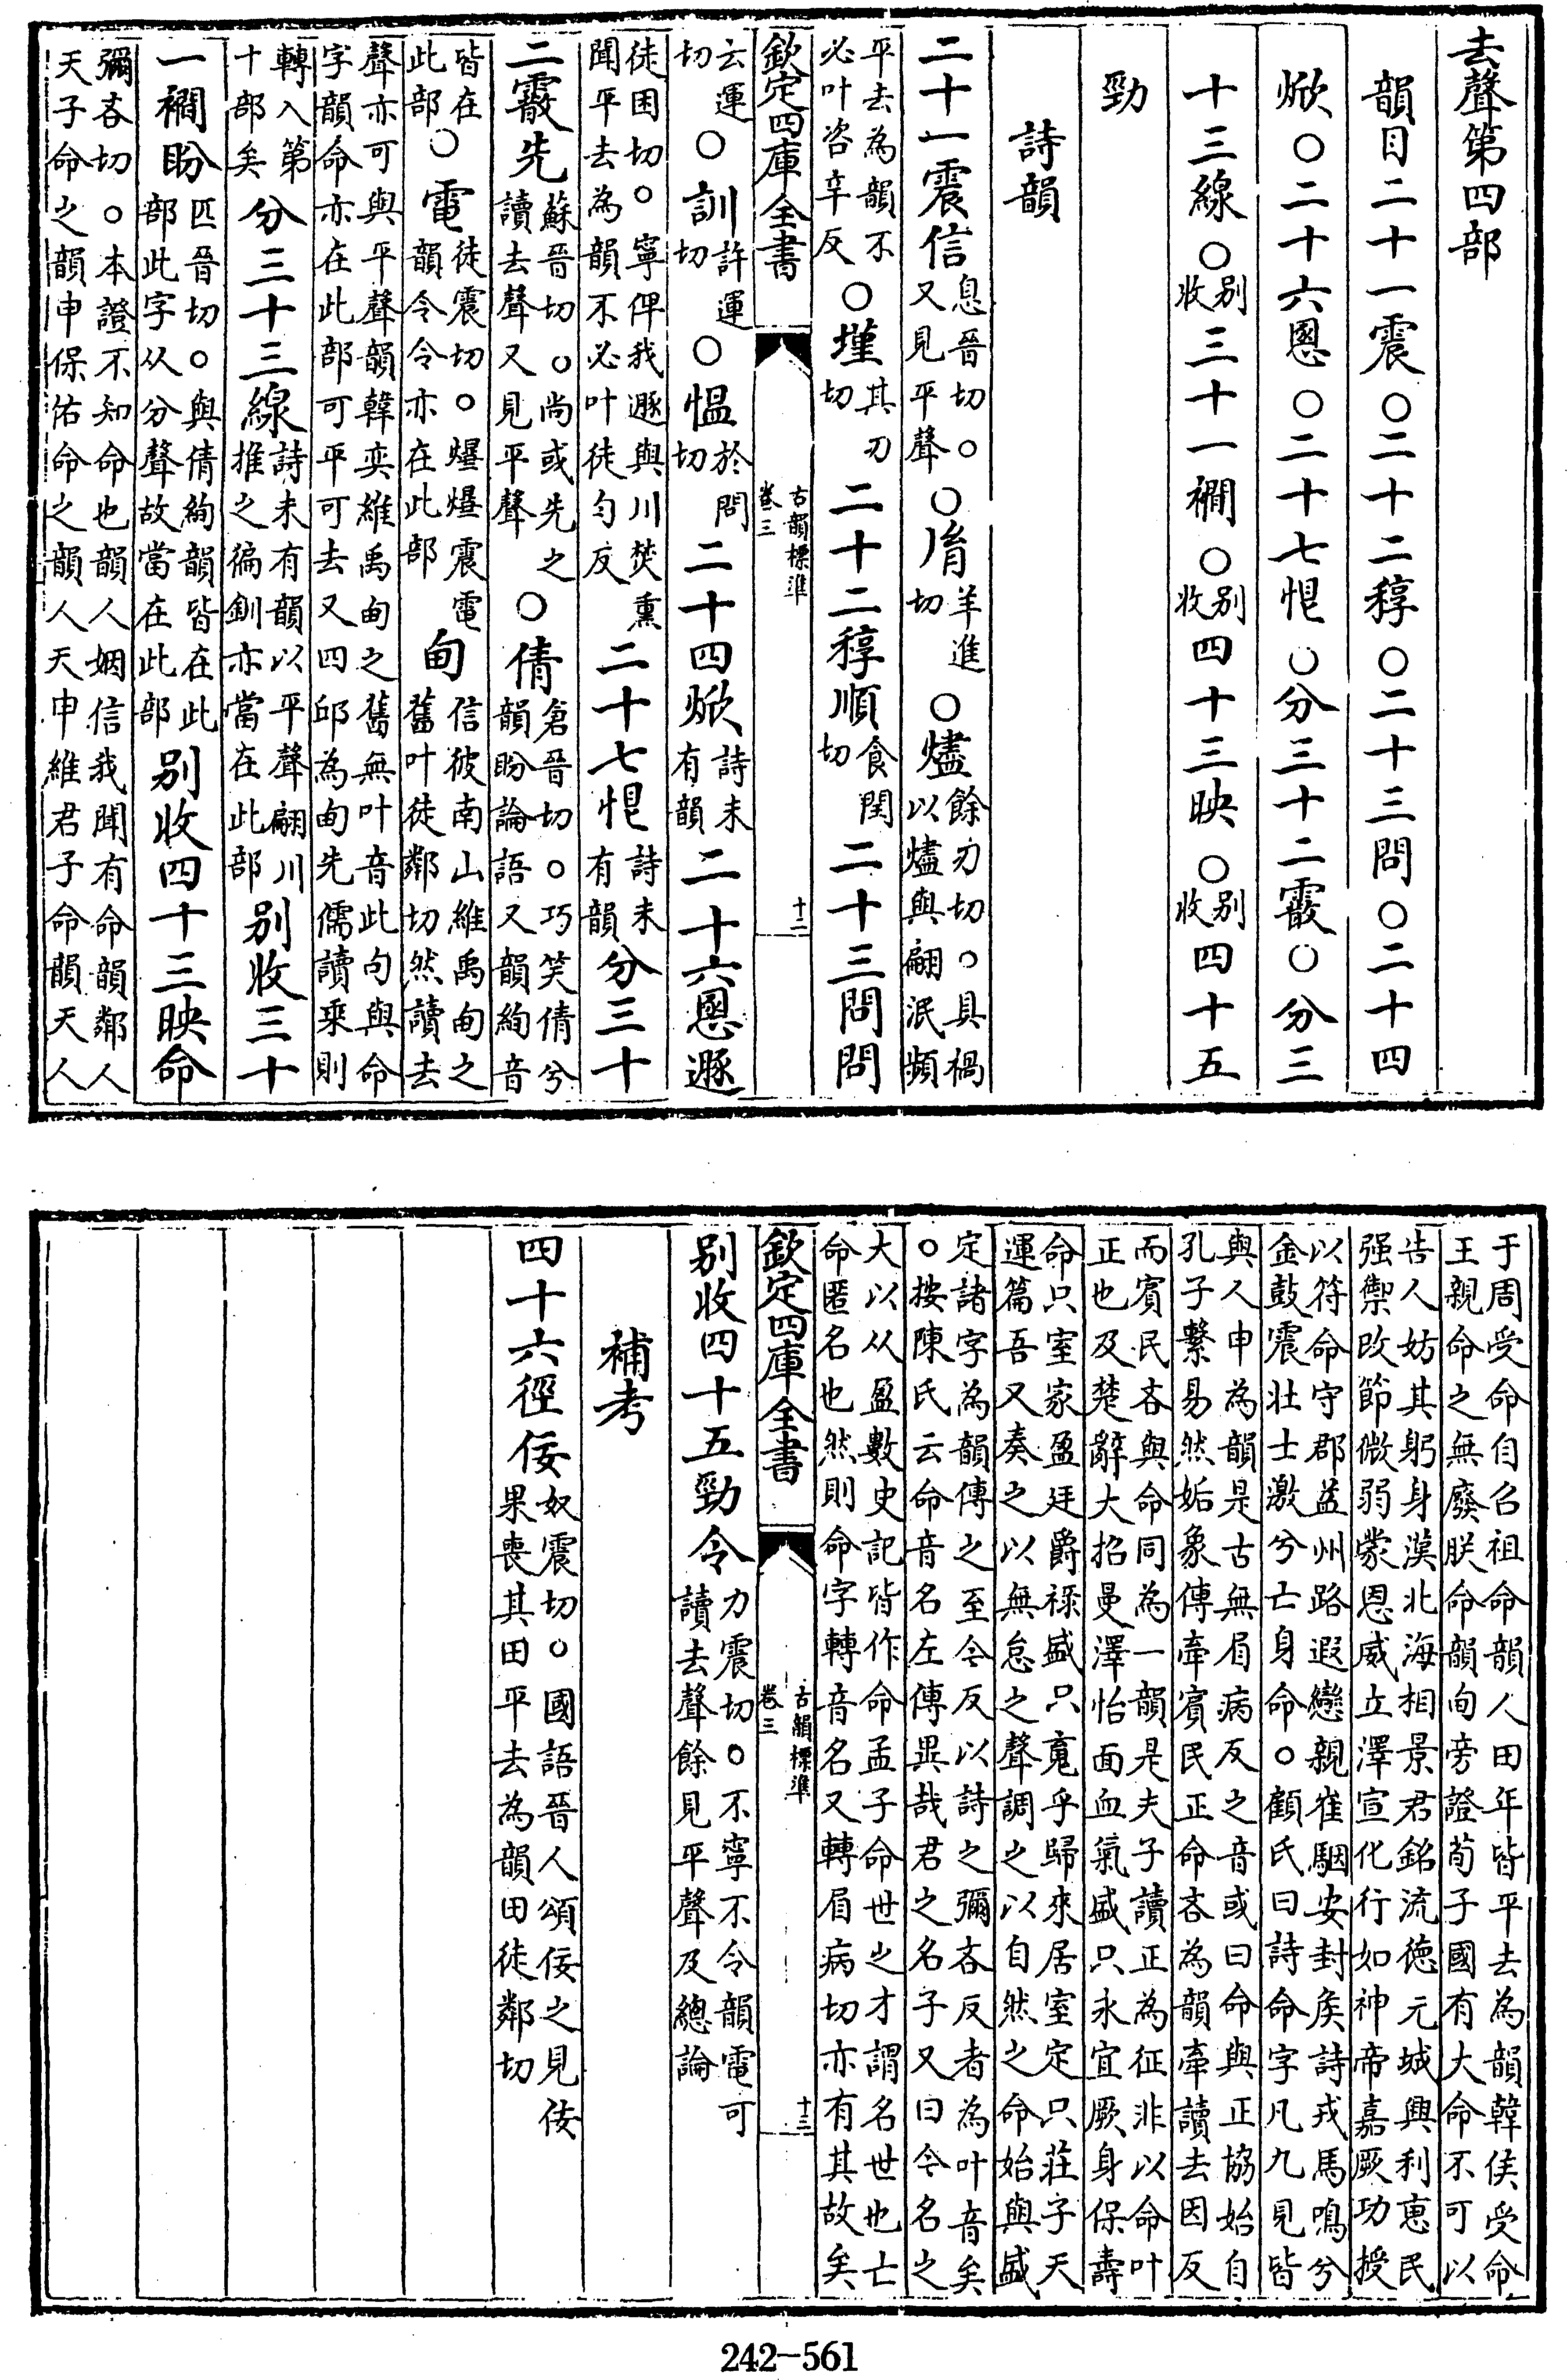 去聲第四部
韻目二十一震○二十二稕○二十三問○二十四
焮○二十六慁○二十七恨○分三十二霰○分三
十三線○别收三十一襉○别收四十三映○别收四十五
勁
詩韻
二十一震信息晉切○又見平聲○胤羊進切○燼餘刃切○具禍以燼與翩泯頻
平去為韻不必叶咨辛反○墐其刃切二十二稕順食閏切二十三問問
欽定四庫全書
古韻標準
卷三
十二
云運切○訓許運切○愠於問切二十四焮詩未有韻二十六慁遯
徒困切○寧俾我遯與川焚熏聞平去為韻不必叶徒勻反二十七恨詩未有韻分三十
二霰先蘇晉切○尚或先之讀去聲又見平聲○倩倉晉切○巧笑倩兮韻盼論語又韻絢音
皆在此部○電徒震切○爗爗震電韻令令亦在此部甸信彼南山維禹甸之舊叶徒鄰切然讀去
聲亦可與平聲韻韓奕維禹甸之舊無叶音此句與命字韻命亦在此部可平可去又四邱為甸先儒讀乘則
轉入第十部矣分三十三線詩未有韻以平聲翩川推之徧釧亦當在此部别收三十
一襉盼匹晉切○與倩絢韻皆在此部此字从分聲故當在此部别收四十三映命
彌吝切○本證不知命也韻人姻信我聞有命韻鄰人
天子命之韻申保佑命之韻人天申維君子命韻天人
于周受命自召祖命韻人田年皆平去為韻韓侯受命
王親命之無廢朕命韻甸旁證荀子國有大命不可以
告人妨其躬身漢北海相景君銘流徳元城興利惠民
强禦改節微弱蒙恩威立澤宣化行如神帝嘉厥功授
以符命守郡益州路遐戀親崔駰安封侯詩戎馬鳴兮
金鼓震壮士激兮亡身命○顧氏曰詩命字凡九見皆
與人申為韻是古無眉病反之音或曰命與正協始自
孔子繫易然姤象傳牽賓民正命吝為韻牽讀去因反
而賓民吝與命同為一韻是夫子讀正為征非以命叶
正也及楚辭大招曼澤怡面血氣盛只永宜厥身保壽
命只室家盈廷爵禄盛只䰟乎歸來居室定只莊子天
運篇吾又奏之以無怠之聲調之以自然之命始與盛
定諸字為韻傳之至今反以詩之彌吝反者為叶音矣
○按陳氏云命音名左傳異哉君之名子又曰今名之
大以从盈數史記皆作命孟子命世之才謂名世也亡
命匿名也然則命字轉音名又轉眉病切亦有其故矣
欽定四庫全書
古韻標準
卷三
十三
别收四十五勁令力震切○不寧不令韻電可讀去聲餘見平聲及總論
補考
四十六徑佞奴震切○國語晉人頌佞之見佞果喪其田平去為韻田徒鄰切
242-561